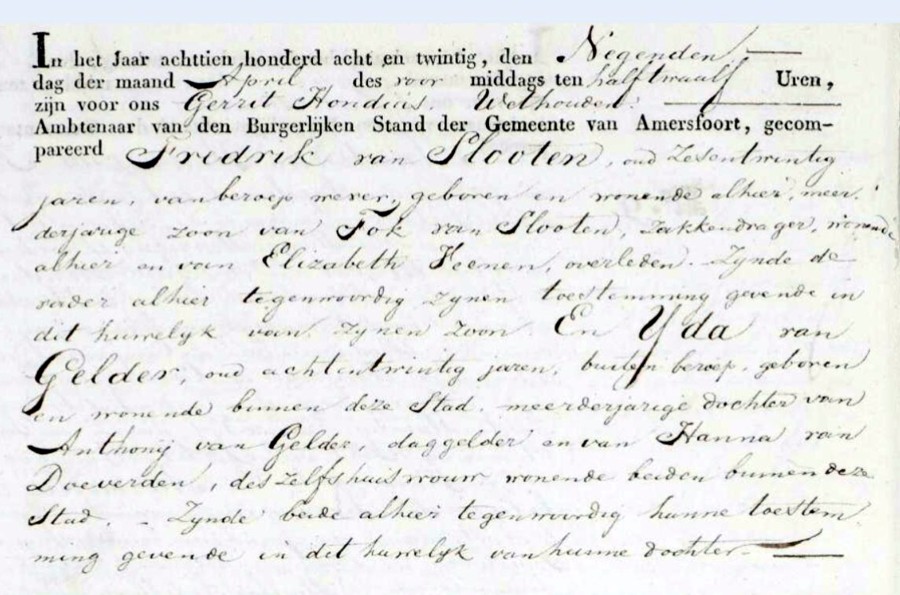 In het Jaar achttien honderd acht en twintig, den Negenden
dag der maand April des voor middags ten half twaalf Uren,
zijn voor ons Gerrit Hondius Wethouder
Ambtenaar van den Burgerlijken Stand der Gemeente van Amersfoort, gecom-
pareerd Fredrik van Slooten, oud Zesentwintig
jaren, van beroep wever, geboren en wonende alhier, meer
derjarige zoon van Fok van Slooten, Zakkendrager, wonende
alhier en van Elizabeth Feenen, overleden. Zynde de
vader alhier tegenwoordig Zynen toestemming gevende in
dit huwelyk van Zynen Zoon. En Yda van
Gelder, oud achtentwintig jaren, buiten beroep, geboren
en wonende binnen deze Stad, meerderjarige dochter van
Anthonij van Gelder, daggelder en van Hanna van
Doeverden, deszelfs huisvrouw wonende beiden binnen deze
Stad. - Zynde beide alhier tegenwoordig hunne toestem
ming gevende in dit huwelyk van hunne dochter